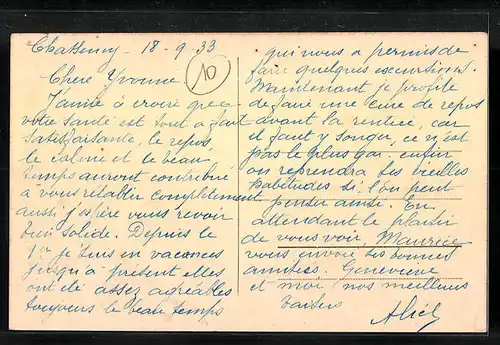 Chassigny - 18-9-33
10
Chère Yvonne
J'aime à croire que
votre santé est tout à fait
satisfaisante, le repos,
le calme et le beau
temps auront contribué
à vous rétablir complètement
aussi j'espère vous revoir
bien solide. Depuis le
1er je suis en vacances
jusqu'à présent elles
ont été assez agréables
toujours le beau temps
qui nous a permis de
faire quelques excursions.
Maintenant je profite
de faire une cure de repos
avant la rentrée, car
il faut y songer, ce n'est
pas le plus gai. enfin
on reprendra ses vieilles
habitudes si l'on peut
penser ainsi. En
attendant le plaisir
de vous voir, Maurice
vous envoie ses bonnes
amitiés. Geneviève
et moi nos meilleurs
baisers